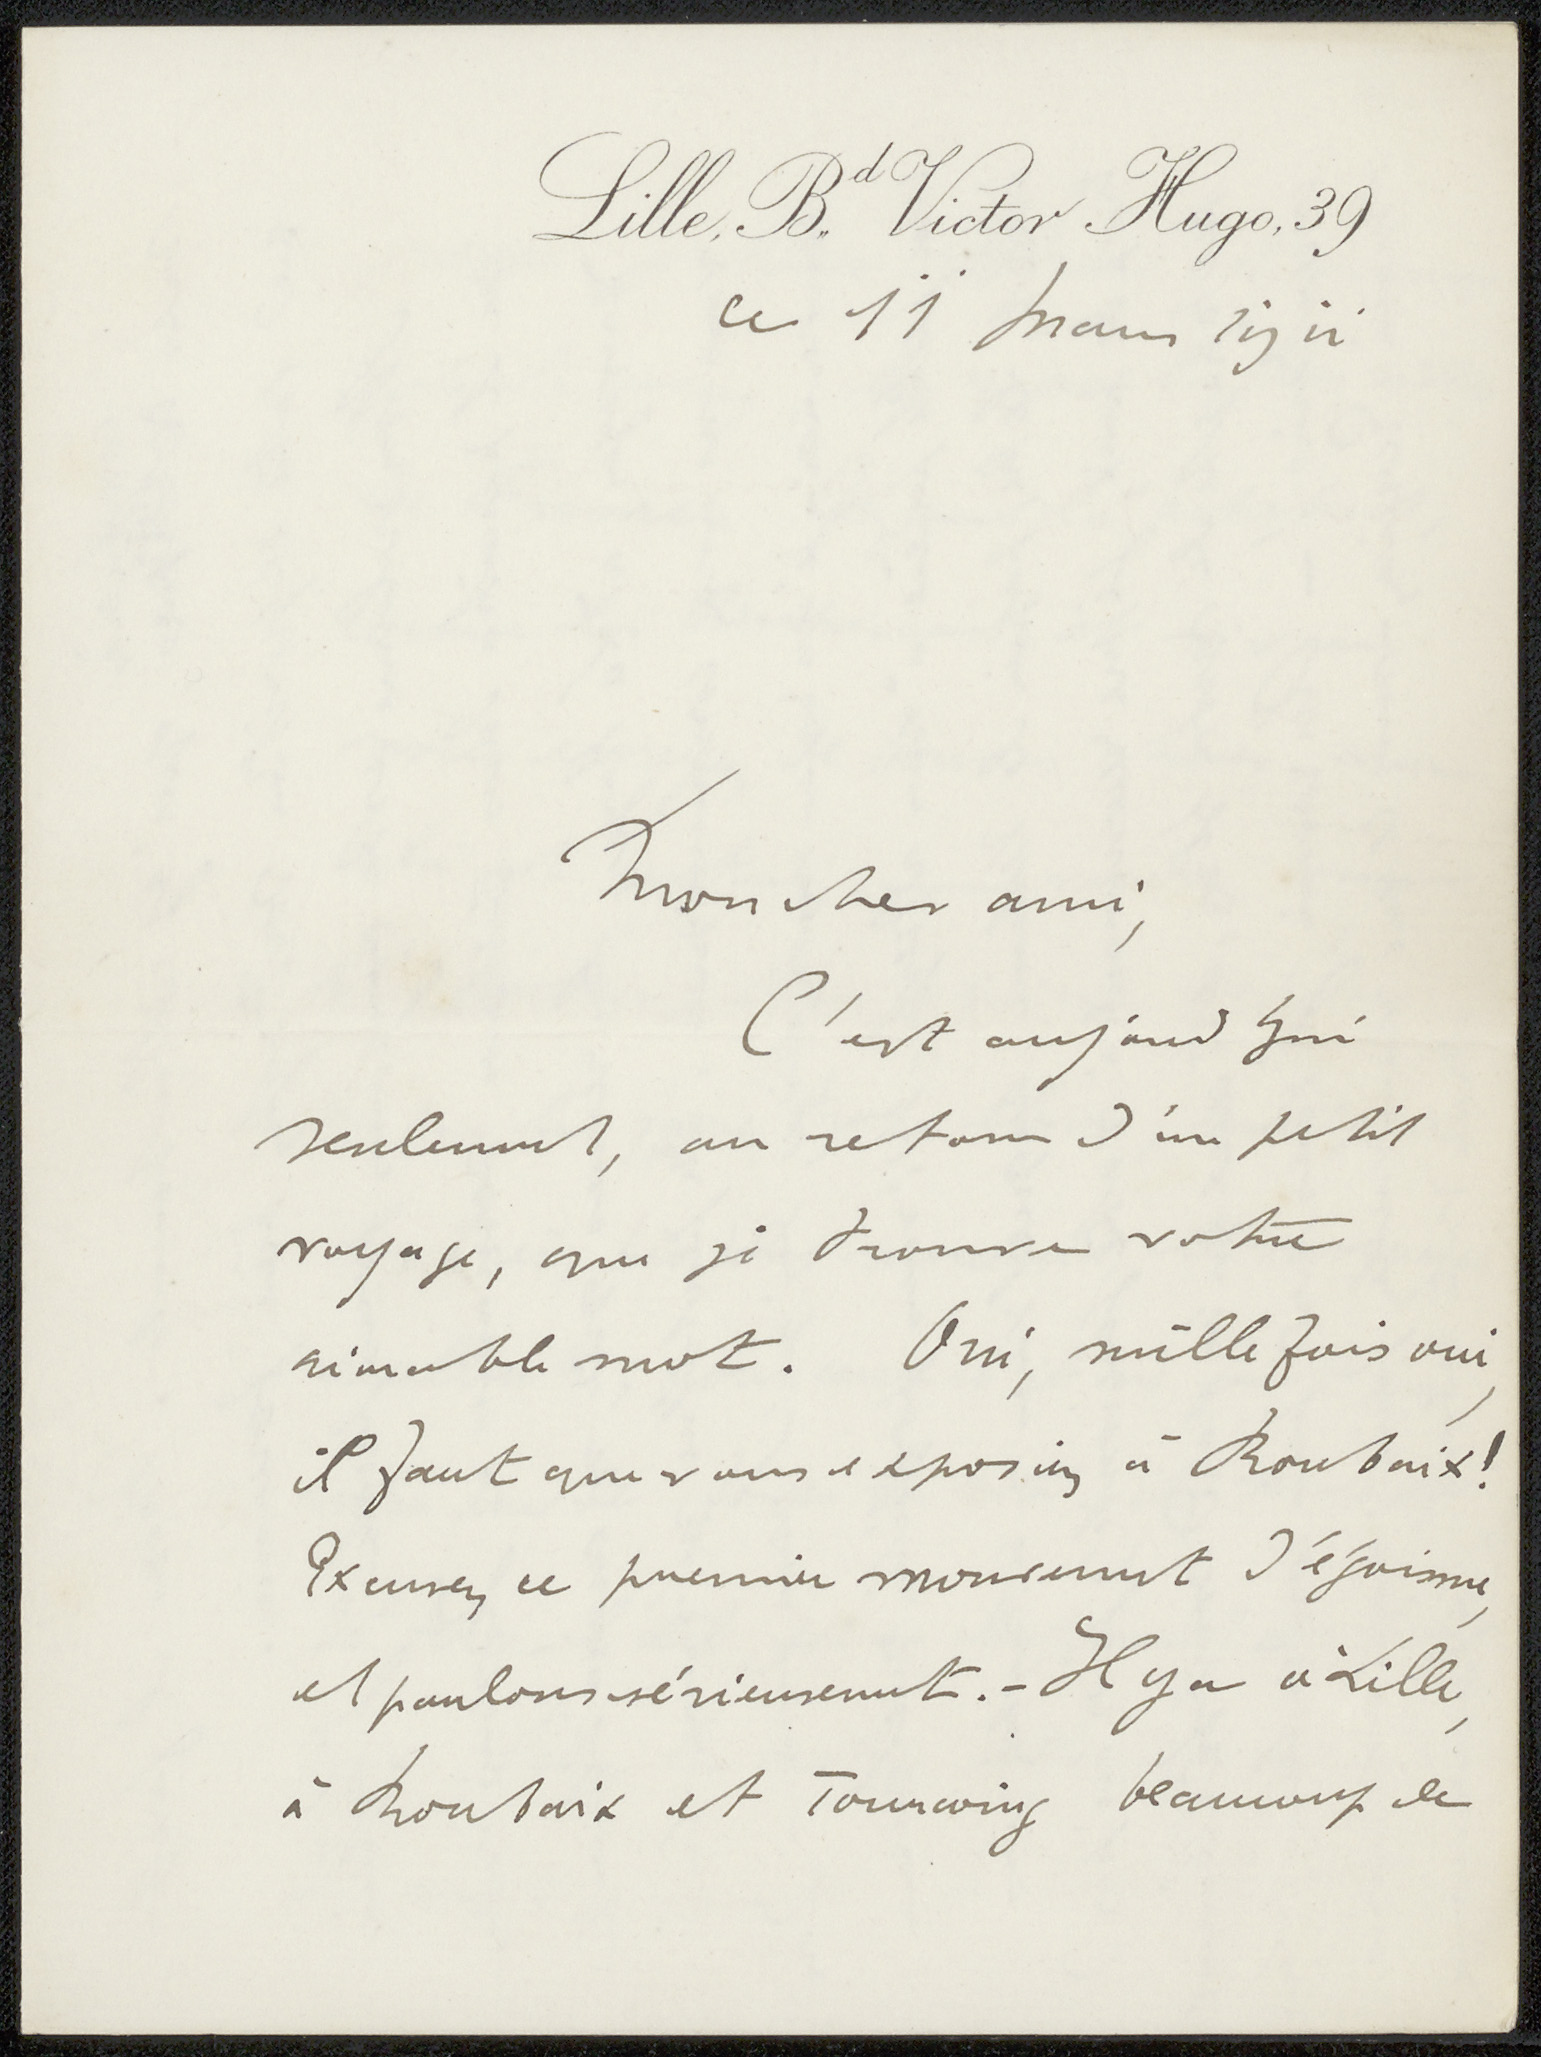 Lille, Bd Victor Hugo, 39
ce 11 mars 1911
Mon cher ami,
C'est aujourd'hui
seulement, au retour d'un petit
voyage, que je trouve votre
aimable mot. Oui, mille fois oui,
il faut que vous exposiez à Roubaix!
Excusez ce premier mouvement d'égoïsme,
et parlons sérieusement. - Il y a à Lille,
à Roubaix et Tourcoing beaucoup de